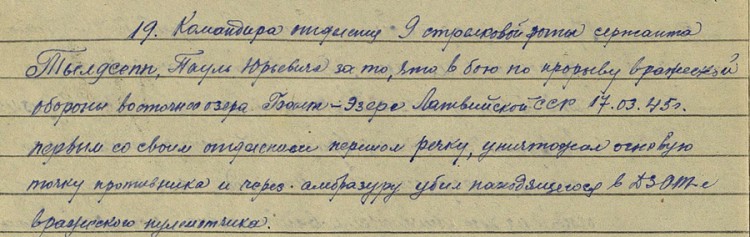 19. Командира отделения 9 стрелковой роты сержанта
Тыелдсепп, Пауль Юрьевича за то, что в бою по прорыву вражеской
обороны восточнее озера Гбольт-Эзерс Латвийской ССР 17.03.45г.
первым со своим отделением перешол речку, уничтожал огневую
точку противника и через амбразуру убил находящегося в ДЗОТ-е
вражеского пулеметчика.